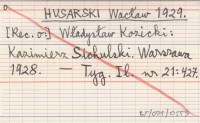 HUSARSKI Wacław 1929.
[Rec. o:] Władysław Kozicki:
Kazimierz Sichulski. Warszawa
1928. — Tyg. Il. nr 21: 427.